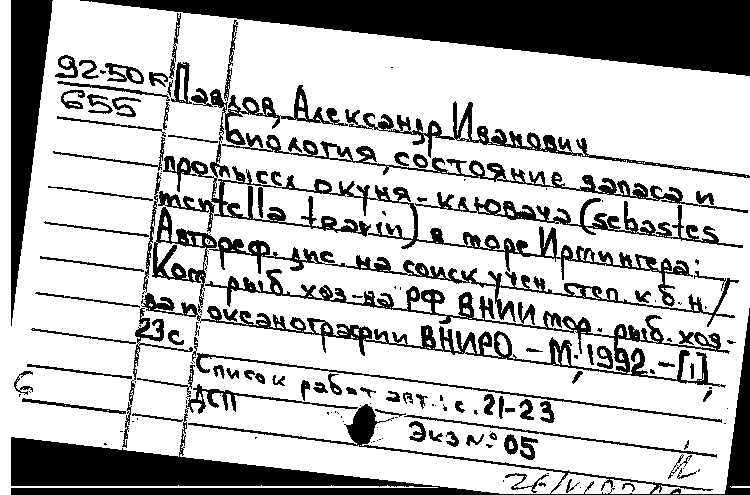 92-50к
655
Павлов, Александр Иванович
Биология, состояние запаса и
промысел окуня-клювача (sebastes
mentella travin) в море Ирмингера:
Автореф. дис. на соиск. учен. степ. к.б.н. /
Ком. рыб. хоз-ва РФ, ВНИИ мор. рыб. хоз-
ва и океанографии ВНИРО. - М., 1992. - [1],
23 с.
Список работ авт.: с. 21-23
ДСП
Экз № 05